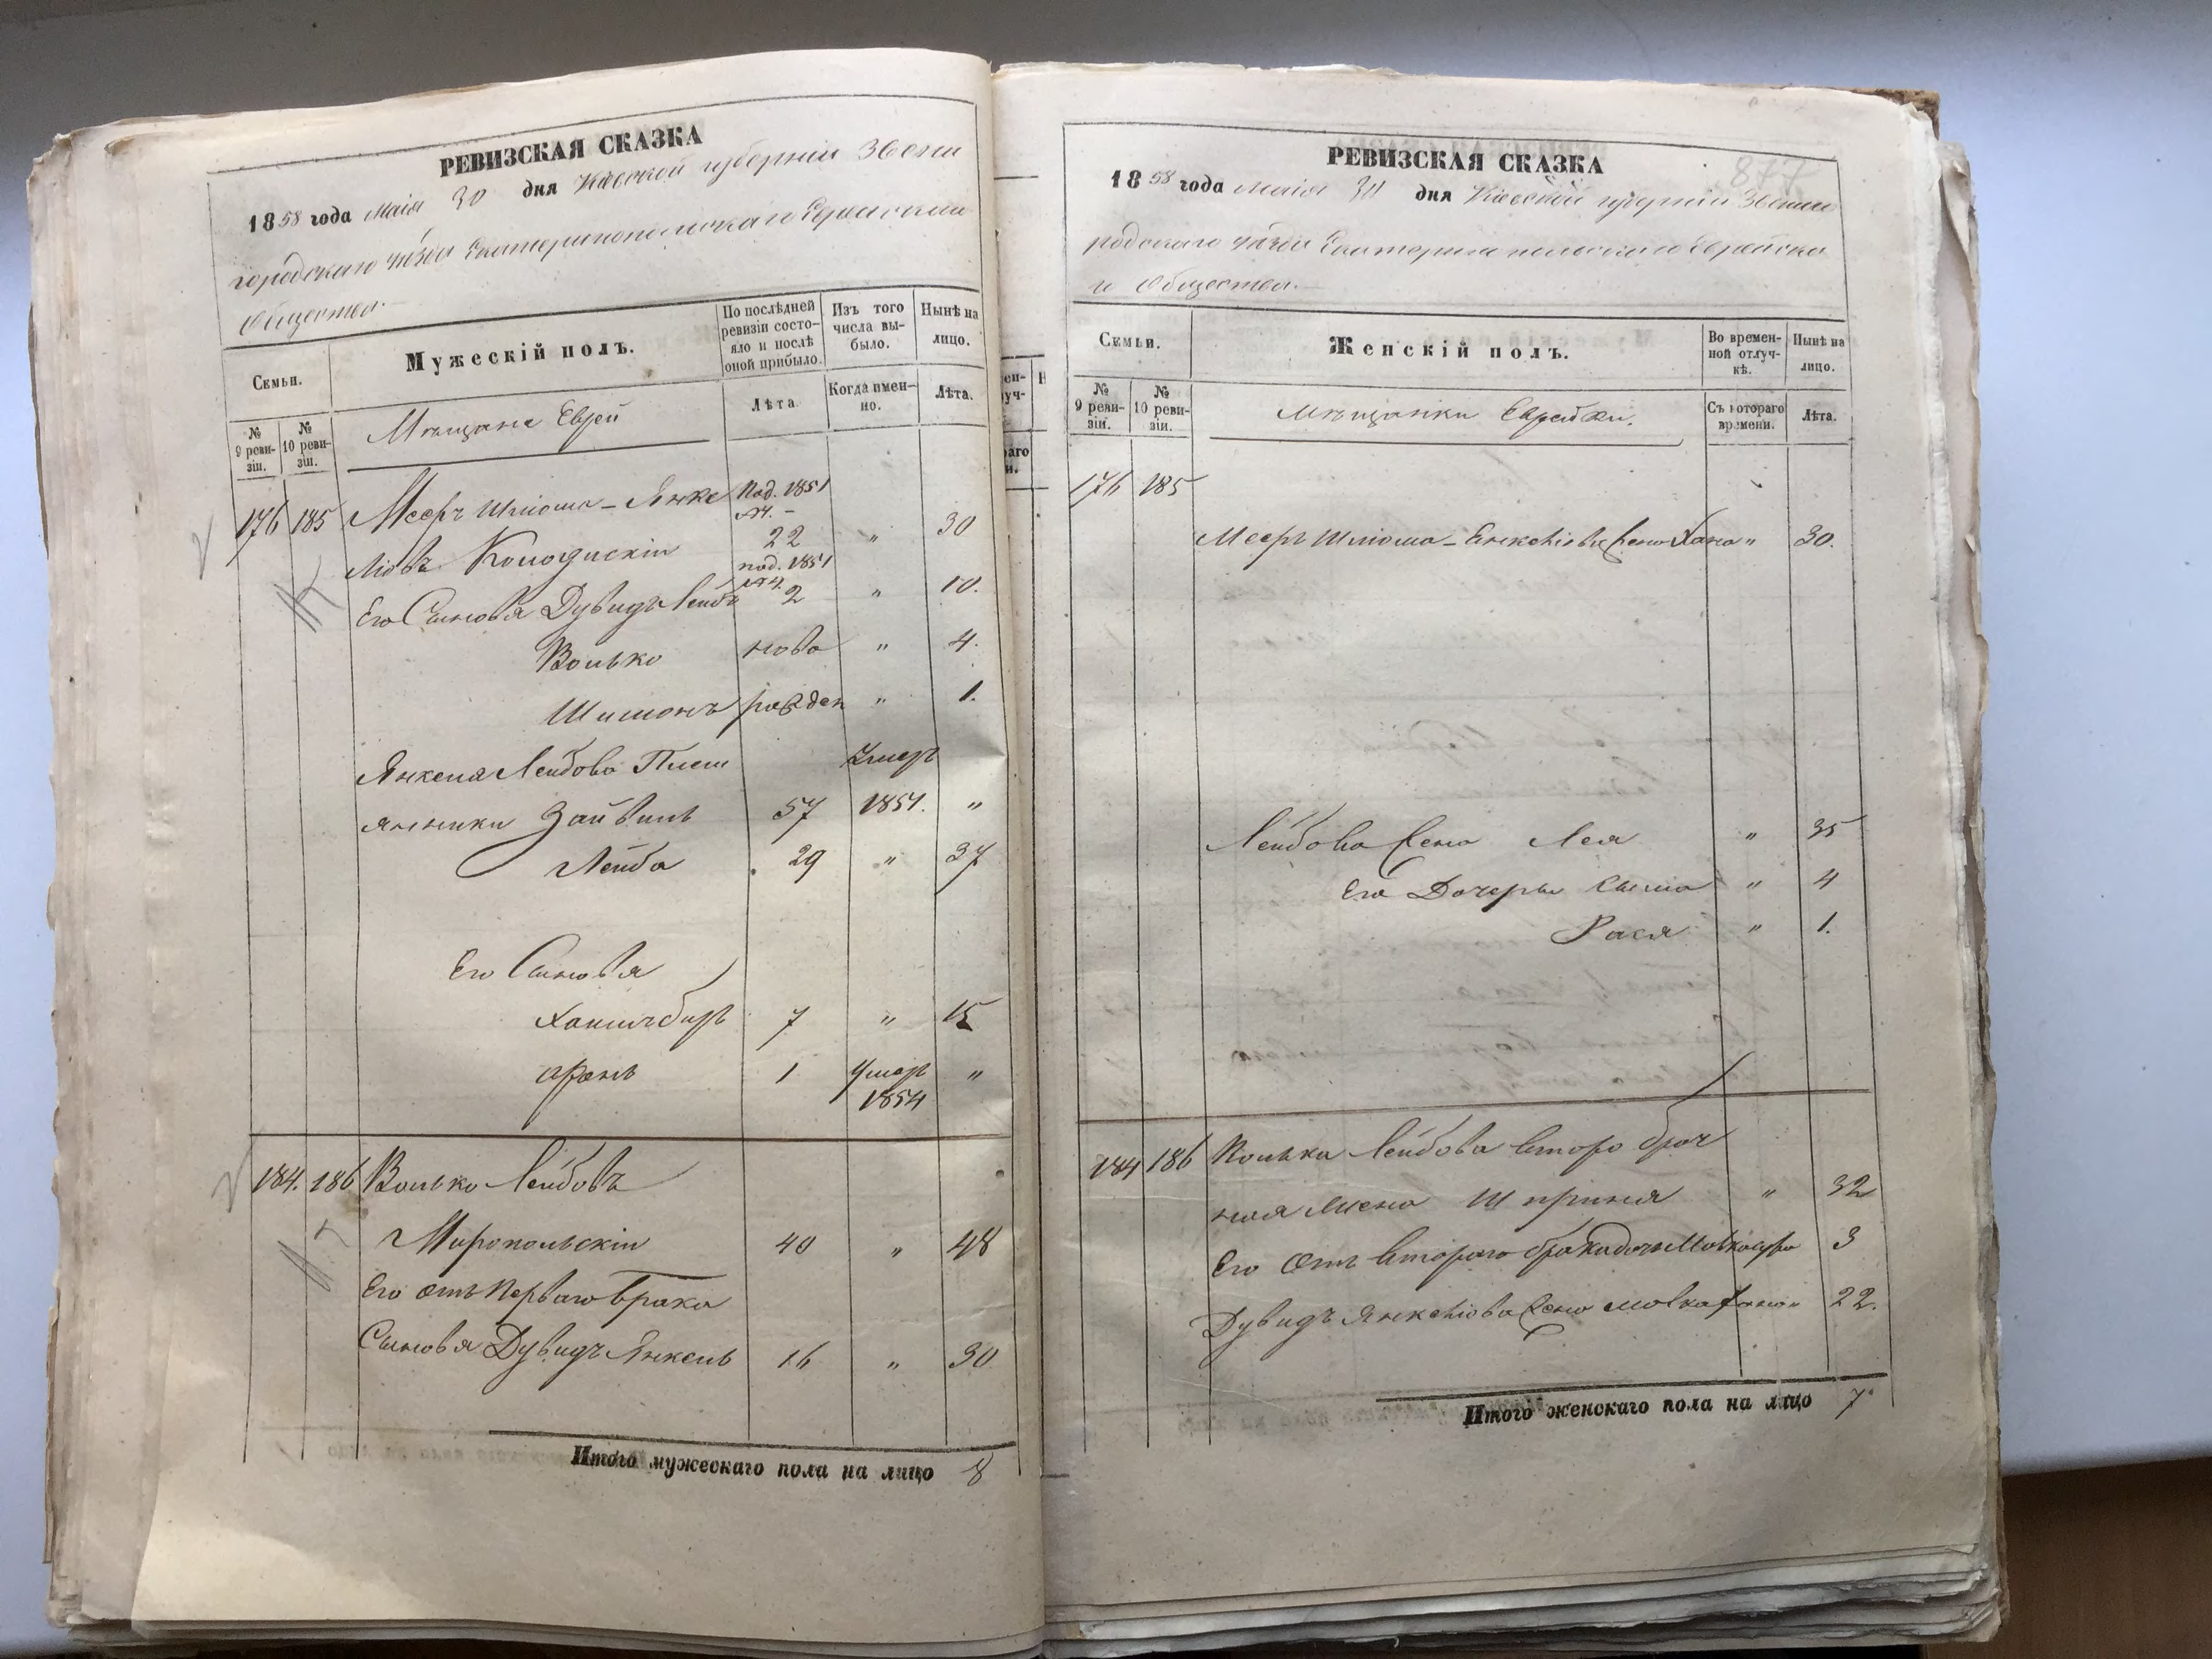 РЕВИЗСКАЯ СКАЗКА
1858 года маія 30 дня Кіевской губерніи Звени
городскаго уѣзда Екатеринопольскаго Еврейскаго
Общества.
Семьи.
Мужескій полъ.
По послѣдней ревизіи состояло и послѣ оной прибыло.
Изъ того числа выбыло.
Нынѣ на лицо.
№ 9 ревизіи.
№ 10 ревизіи.
Мѣщане Евреи
Лѣта
Когда именно.
Лѣта.
176 185 Мееръ Шліома-Янке
под. 1851
22 " 30
лювъ Колодискій
под. 1851
Его Сыновья Дувидъ Лейба 2 " 10.
Волько ново " 4.
Шимонъ рожден " 1.
Янкеля Лейбова Плем Умеръ
янники Зайвель 57 1851. "
Лейба 29 " 37
Его Сыновья
Хаимъ беръ 7 " 15
Аронъ 1 Умеръ "
1854
184. 186 Волько Лейбовъ
Миропольскій 40 " 48
Его отъ Перваго брака
Сыновья Дувидъ Янкель 16 " 30
Итого мужескаго пола на лицо 8
877
РЕВИЗСКАЯ СКАЗКА
1858 года маія 30 дня Кіевской губерніи Звени
родскаго уѣзда Екатеринопольскаго Еврейска
го Общества.
Семьи.
Женскій полъ.
Во временной отлучкѣ.
Нынѣ на лицо.
№ 9 ревизіи.
№ 10 ревизіи.
Мѣщанки Еврейки.
Съ котораго времени.
Лѣта.
176 185
Мееръ Шліома-Янкеліова жена Хана " 30.
Лейбова жена Лея " 35
Его Дочеры Сыма " 4
Рася " 1.
184 186 Волька Лейбова второ брач
ная жена Шприня " 32
Его отъ втораго брака дочь 3
Дувидъ Янкеліова жена Хана " 22.
Итого женскаго пола на лицо 7